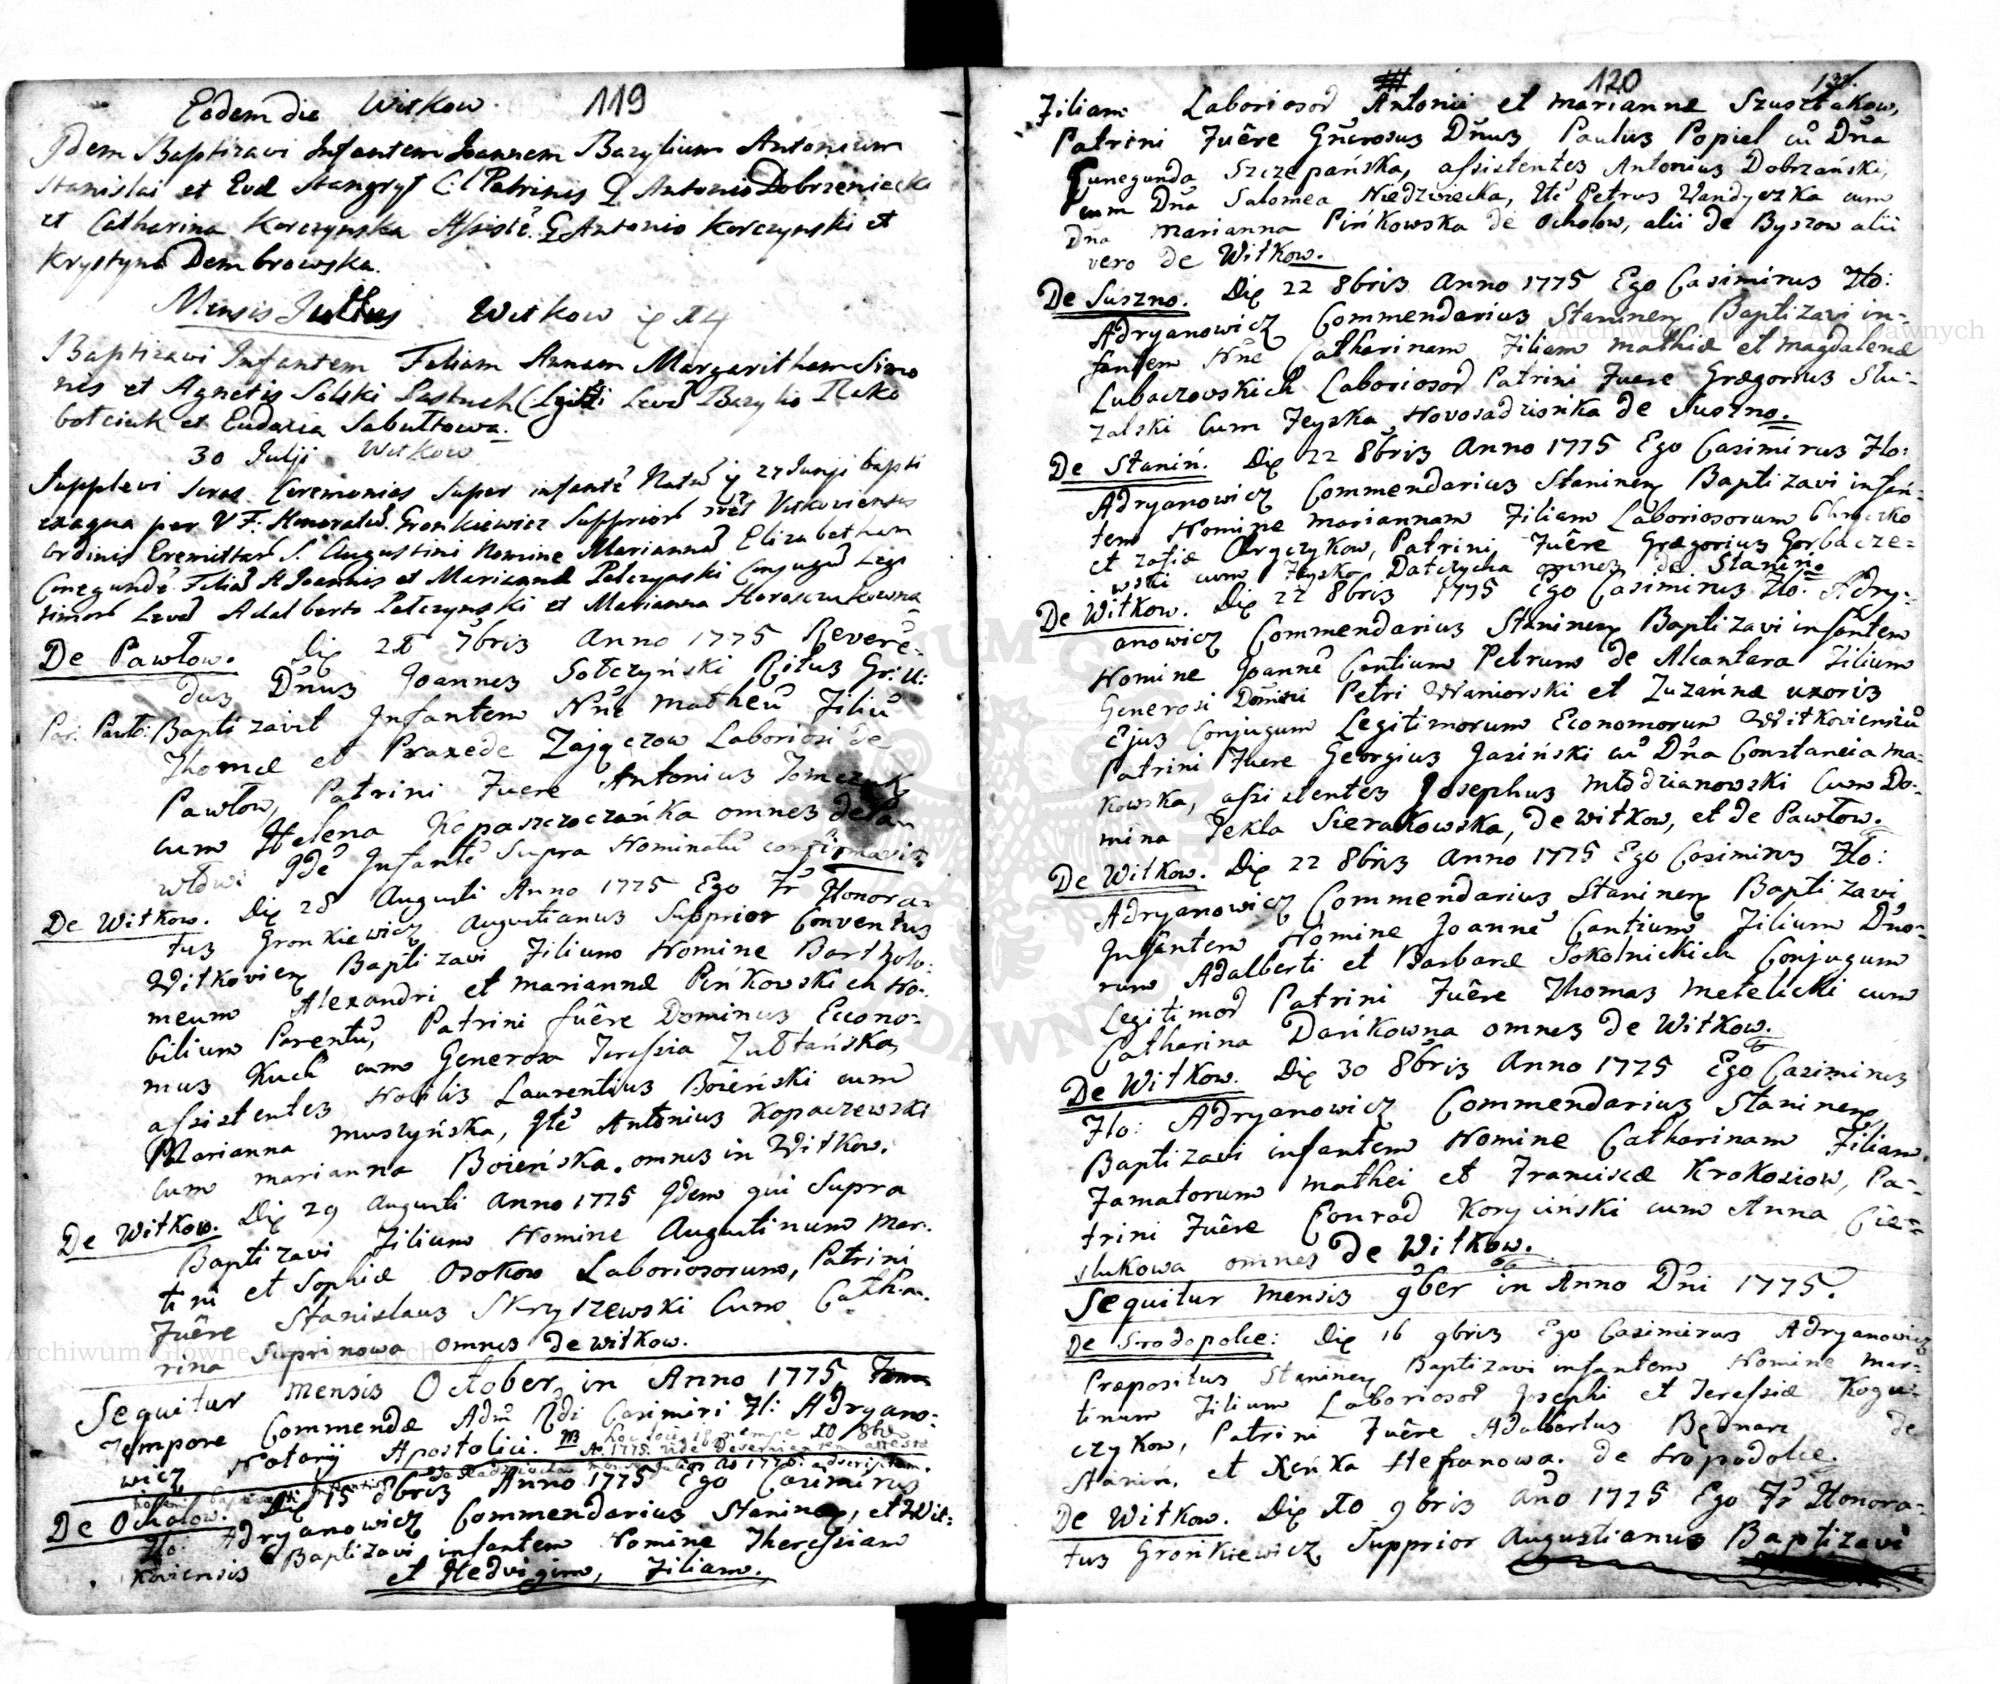 119
Eadem die Witkow.
Idem Baptizavi Infantem Joannem Bazylium Antonium
Stanislai et Evæ Stangryt C: l Patrinis G Antonio Dobrzeniecki
et Catharina Korczynska Assistē. G Antonio Korczynski et
Krystyna Dembrowska.
Mensis Julius Witkow
Baptizavi Infantem Filiam Annam Margaritham Simo
nis et Agnetis Salski Pastuch Levā Bazylio Rako
bolciuk et Eudoxia Sabultowa.
30 Julji Witkow
Supplevi Sacras Ceremonias Super infantē Natā 27 Junji bapti
exaqua per V F: Honoratū. Gronkiewicz Supprior Vitkoviensis
Ordinis Eremittar S. Augustini Nomine Mariannā Elizabetham
Cunegundē Filiā Joannis et Mariannæ Pelczynski Conjugū Legi
timor Levā Adalberto Pelczynski et Marianna Harasczukowna
De Pawłow. Die 21 7bris Anno 1775 Revere-
dus Dn̄us Joannes Sołczyński Ritus Gr: U:
Par: Pawło: Baptizavit Infantem Nn̄e Matheū Filiū
Thomæ et Praxede Zajączow Laboriosi de
Pawłow, Patrini Fuere Antonius Tomczuk
cum Helena Kopaszczoczańka omnes de Pa
włowi Idē Infantē Supra Nominatū confirmavit
De Witkow. Die 28 Augusti Anno 1775 Ego Fr̄ Honora-
tus Gronkiewicz Augustianus Supprior Conventus
Witkovien Baptizavi Filium Nomine Bartholo-
meum Alexandri et Mariannæ Pińkowskich No-
bilium Parentū, Patrini fuêre Dominus Econo-
mus Kuch cum Generosa Teressia Zubłańska,
assistentes Nobilis Laurentius Boieński cum
Marianna Muszyńska, Itē Antonius Kopaczewski
cum Marianna Boieńska. omnes in Witkow.
De Witkow. Die 29 Augusti Anno 1775 Idem qui Supra
Baptizavi Filium Nomine Augustinum Mar-
tini et Sophiæ Osokow Laboriosorum, Patrini
Fuêre Stanislaus Skryszewski Cum Catha-
rina Suprinowa omnes de Witkow.
Sequitur Mensis October, in Anno 1775
Tempore Commendæ Adm̄ Rdi Casimiri Fl: Adryano-
wicz Notarij Apostolici. NB
De Ochołow. Die 15 8bris Anno 1775 Ego Casimirus
Flo: Adryanowicz Commendarius Staninen, et Wit-
koviensis Baptizavi infantem Nomine Theressiam
et Hedvigim, Filiam.
120
Filiam Laboriosor Antonii et Mariannæ Szustakow,
Patrini Fuêre Gn̄erosus Dn̄us Paulus Popiel cū Dn̄a
Cunegunda Szczepańska, assistentes Antonius Dobrzański,
cum Dn̄a Salomea Niedzwiecka, Itē Petrus Wandyczka cum
Dn̄a Marianna Pińkowska de Ochołow, alii de Byszow alii
vero de Witkow.
De Suszno. Die 22 8bris Anno 1775 Ego Casimirus Flo:
Adryanowicz Commendarius Staninen Baptizavi in-
fantem Nn̄e Catharinam Filiam Mathiæ et Magdalenæ
Lubaczowskich Laboriosor Patrini Fuere Gregorius Stu-
zalski Cum Feyska Novosadzionka de Suszno.
De Stanin. Die 22 8bris Anno 1775 Ego Casimirus Flo:
Adryanowicz Commendarius Staninen Baptizavi infan-
tem Nomine Mariannam Filiam Laboriosorum
et Zofiæ Patrini Fuêre Gregorius Gorbacze-
wski cum Feyska Datczycha omnes de Stanin.
De Witkow. Die 22 8bris 1775 Ego Casimirus Flo: Adry-
anowicz Commendarius Staninen Baptizavi infantem
Nomine Joannē Cantium Petrum de Alcantara Filium
Generosi Domini Petri Waniorski et Zuzannæ uxoris
Ejus Conjugum Legitimorum Economorum Witkoviensiū
Patrini Fuere Georgius Jasiński cū Dn̄a Constancia Ma-
kowska, assistentes Josephus Młodzianowski Cum Do-
mina Tekla Sierakowska, de Witkow, et de Pawłow.
De Witkow. Die 22 8bris Anno 1775 Ego Casimirus Flo:
Adryanowicz Commendarius Staninen Baptizavi
Infantem Nomine Joannē Cantium Filium Dn̄o-
rum Adalberti et Barbaræ Sokolnickich Conjugum
Legitimor Patrini Fuêre Thomas Metelicki cum
Catharina Dańkowna omnes de Witkow.
De Witkow. Die 30 8bris Anno 1775 Ego Casimirus
Flo: Adryanowicz Commendarius Staninen
Baptizavi infantem Nomine Catharinam Filiam
Famatorum Mathei et Franciscæ Krokosiow, Pa-
trini Fuêre Conrad Koryciński cum Anna Cie-
slukowa omnes de Witkow.
Sequitur Mensis 9ber in Anno Dn̄i 1775.
De Srodopolce: Die 16 9bris Ego Casimirus Adryanowicz
Præpositus Staninen Baptizavi infantem Nomine Mar-
tinum Filium Laboriosor Josephi et Teressiæ Kogu-
czykow, Patrini Fuêre Adalbertus Bednarz de
Stanin, et Xeńka Stefanowa. de Sropodolce.
De Witkow. Die 20 9bris Año 1775 Ego Fr̄ Honora-
tus Grońkiewicz Supprior Augustianus Baptizavi
Archiwum Główne Akt Dawnych
Archiwum Główne Akt Dawnych